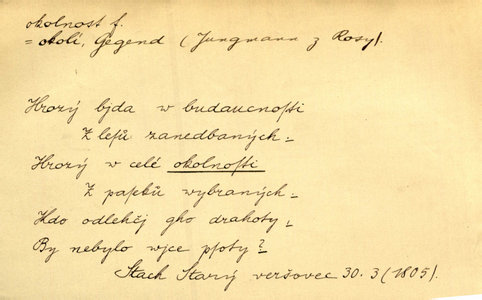 okolnost f.
= okolí, Gegend (Jungmann z Rosy).
Hrozý bjda w budaucnosti
Z lesů zanedbaných –
Hrozý w celé okolnosti
Z paseků wybraných –
Kdo odlehčj gho drahoty,
By nebylo wjce psoty?
Stach Starý veršovec 30. 3 (1805).